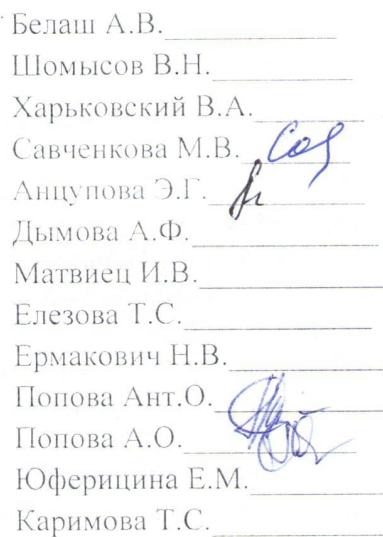 Белаш А.В.
Шомысов В.Н.
Харьковский В.А.
Савченкова М.В.
Анцупова Э.Г.
Дымова А.Ф.
Матвиец И.В.
Елезова Т.С.
Ермакович Н.В.
Попова Ант.О.
Попова А.О.
Юферицина Е.М.
Каримова Т.С.